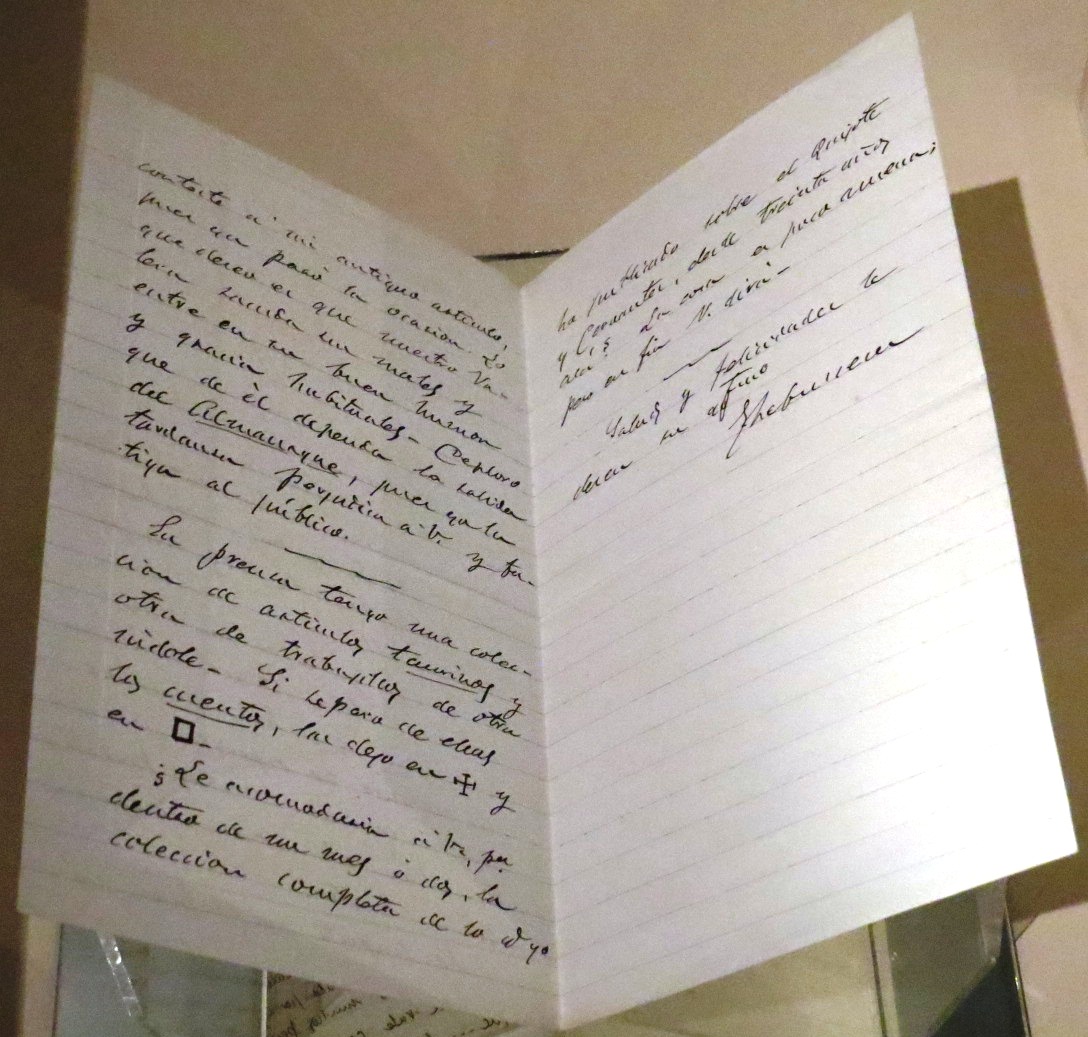 contesto á mi antiguo artículo,
pues ya pasó la ocasión. Lo
que deseo es que nuestro Va-
lera sacuda sus males y
entre en su buen humor
y gracia habituales - Deploro
que de él dependa la salida
del Almanaque, pues ya la
tardanza perjudica á V. y fa-
tiga al público.
En prensa tengo una colec-
ción de artículos taurinos y
otra de trabajillos de otra
índole - Si separo de ellas
los cuentos, las dejo en ✠ y
en □ -
¿Le acomodaría á V., pa
dentro de un mes ó dos, la
colección completa de lo q yo
ha publicado sobre el Quijote
y Cervantes, desde treinta años
acá? La cosa es poco amena;
pero en fin V. dirá -
Salud y felicidades le
desea su af
Thebussem